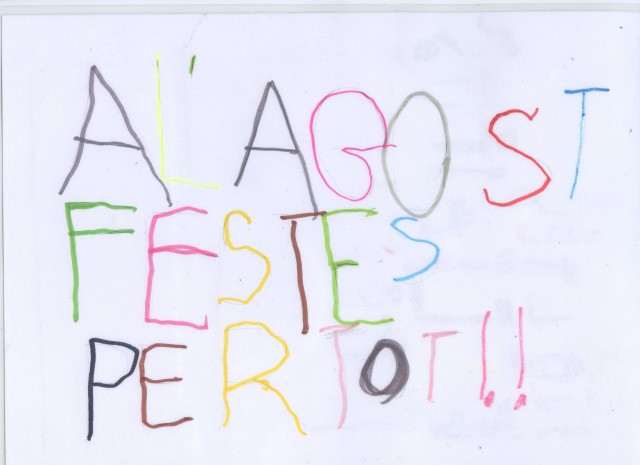 A L'AGOST
FESTES
PER TOT!!